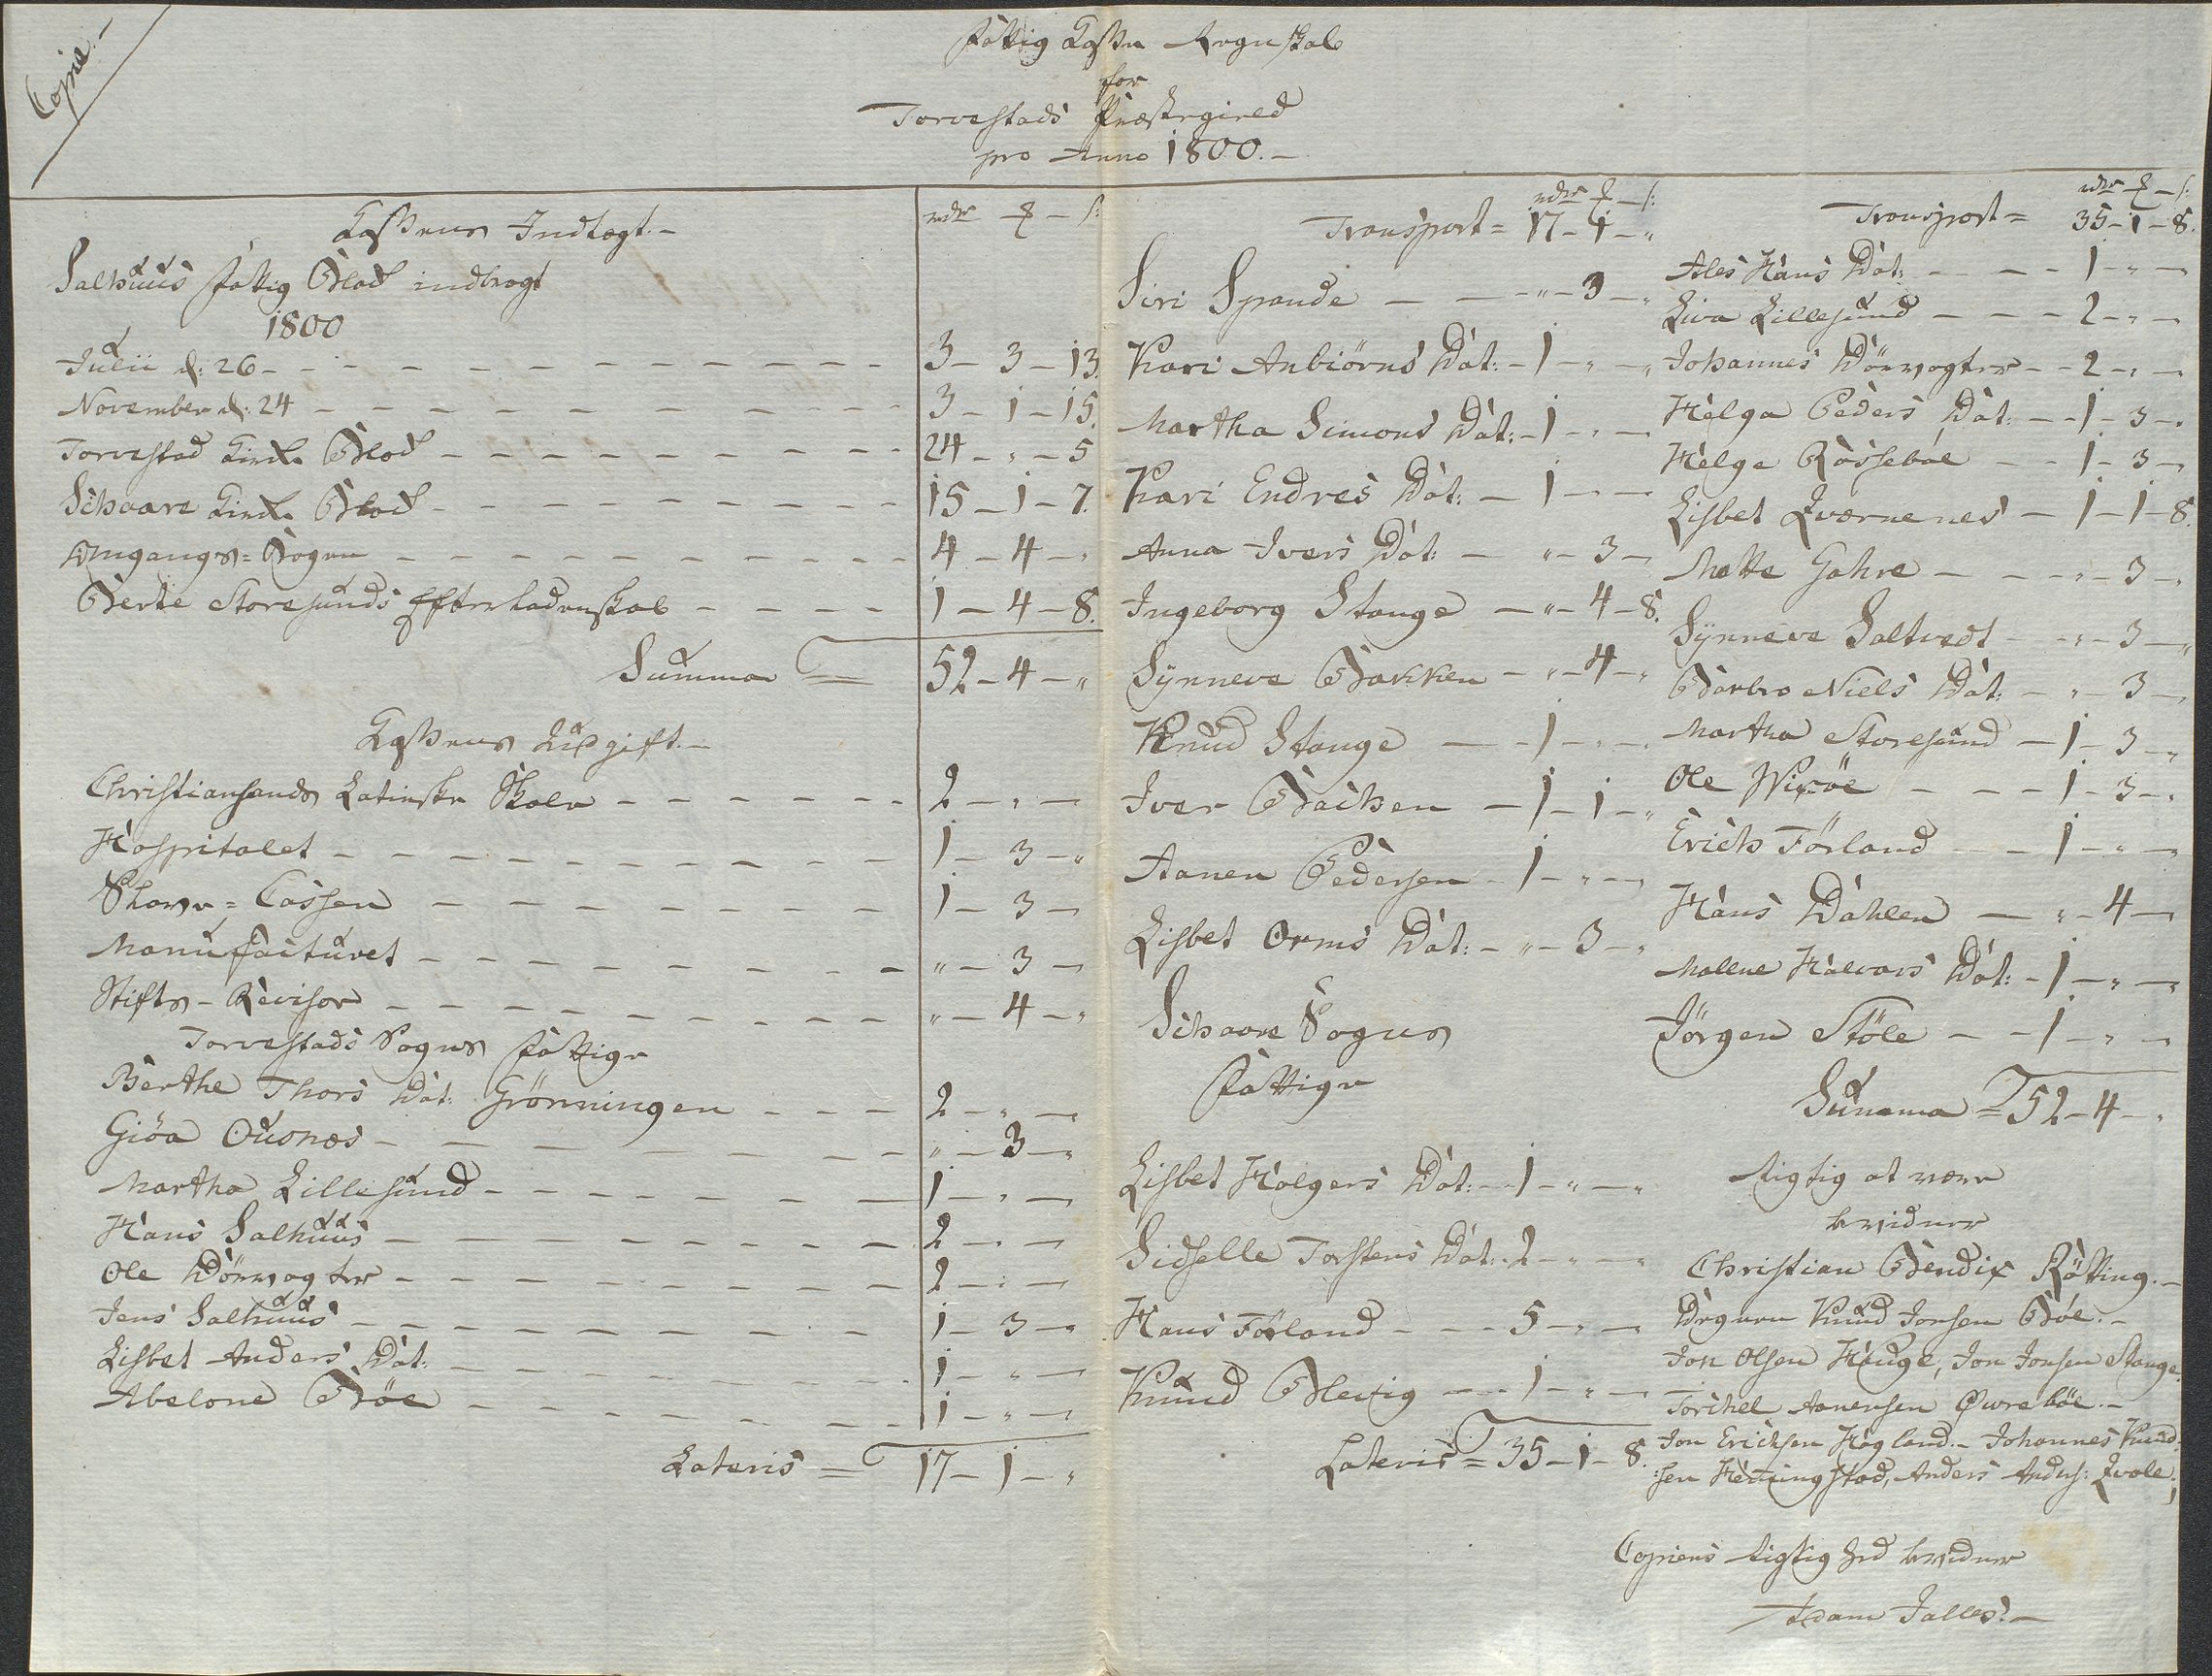 Copie.-
Fattig Cassa Regnskab
for
Torvestads Præstegield
pro Anno 1800.-
Cassens Indtægt.-
rdr ℔ - s:
Salhuus Fattig Blok indbragt
1800
Julii d: 26 - 3 - 3 - 13.
November d: 24 - 3 - 1 - 15.
Torvestad Kirke Blok - 24 - " - 5
Schaare Kirke Blok - 15 - 1 - 7.
Omgangs=Bogen - 4 - 4 - "
Berte Storesunds Efterladenskab - 1 - 4 - 8.
Summa = 52 - 4 - "
Cassens Udgift.-
Christiansands Latinske Skole - 2 - " - "
Hospitalet - 1 - 3 - "
Skole=Cassen - 1 - 3 - "
Manufacturet - " - 3 - "
Stifts-Revisor - " - 4 - "
Torvestads Sogns Fattige
Berthe Thors Dat: Grönningen - 2 - " - "
Giöa Ousnæs - " - 3 - "
Martha Lillesund - 1 - " - "
Hans Salhuus - 2 - " - "
Ole Dörvogter - 2 - " - "
Jens Salhuus - 1 - 3 - "
Lisbet Anders Dat: - 1 - " - "
Abelone Böe - 1 - " - "
Lateris = 17 - 1 - "
rdr ℔ - s:
Transport = 17 - 1 - "
Siri Spande - " - 3 - "
Kari Anbiörns Dat: - 1 - " - "
Martha Simons Dat: - 1 - " - "
Kari Endres Dat: - 1 - " - "
Anna Ivers Dat: - " - 3 - "
Ingeborg Stange - " - 4 - 8.
Synneve Bakken - " - 4 - "
Knud Stange - 1 - " - "
Iver Bachen - 1 - 1 - "
Aanen Pedersen - 1 - " - "
Lisbet Orms Dat: - " - 3 - "
Schaare Sogns
Fattige
Lisbet Holgers Dat: - 1 - " - "
Sidselle Torstens Dat: 2 - " - "
Hans Förland - 5 - " - "
Knud Blevig - 1 - " - "
Lateris = 35 - 1 - 8.
rdr ℔ - s:
Transport = 35 - 1 - 8.
Ales Hans Dat: - 1 - " - "
Liva Lillesund - 2 - " - "
Johannes Dörvogter - 2 - " - "
Helga Peders Dat: - 1 - 3 - "
Helge Rossebøe - 1 - 3 - "
Lisbet Qværnenes - 1 - 1 - 8.
Mette Gahre - " - 3 - "
Synneve Saltvedt - " - 3 - "
Barbro Niels Dat: - " - 3 - "
Martha Storesund - 1 - 3 - "
Ole Wixöe - 1 - 3 - "
Erich Förland - 1 - " - "
Hans Dahlen - " - 4 - "
Mallene Halvors Dat: - 1 - " - "
Jörgen Stöle - 1 - " - "
Summa = 52 - 4 - "
Rigtig at være
bevidner
Christian Bendix Rötting.-
Degnen Knud Jonsen Bøe.-
Jon Olsen Hauge, Jon Jonsen Stange.
Torchel Aanensen Øvreböe.-
Jon Erichsen Hogland.- Johannes Knud-
:sen Hemmingstad, Anders Anders: Qvale.
Copiens Rigtighed bevidner